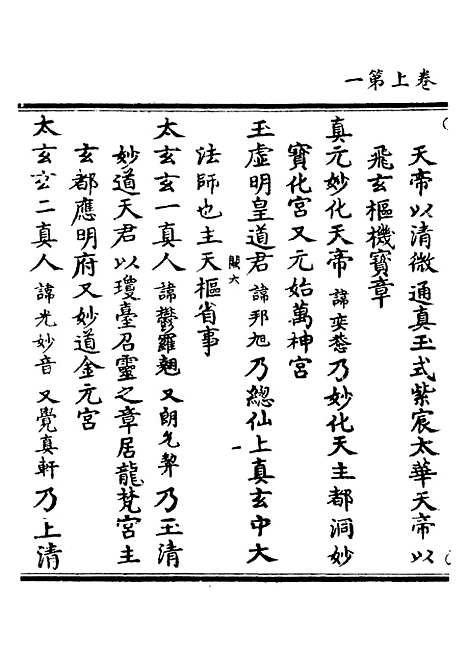 卷上第一
天帝以清微通真玉式紫宸太華天帝以
飛玄樞機寶章
真元妙化天帝諱奕𢙢乃妙化天主都洞妙
寶化宮又元始萬神宮
玉虛明皇道君諱邦旭乃總仙上真玄中大
関六
一
法師也主天樞省事
太玄玄一真人諱鬱羅翹又朗㐰乃玉清
妙道天君以瓊臺召靈之章居龍梵宮主
玄都應明府又妙道金元宮
太玄玄二真人諱光妙音又覺真軒乃上清